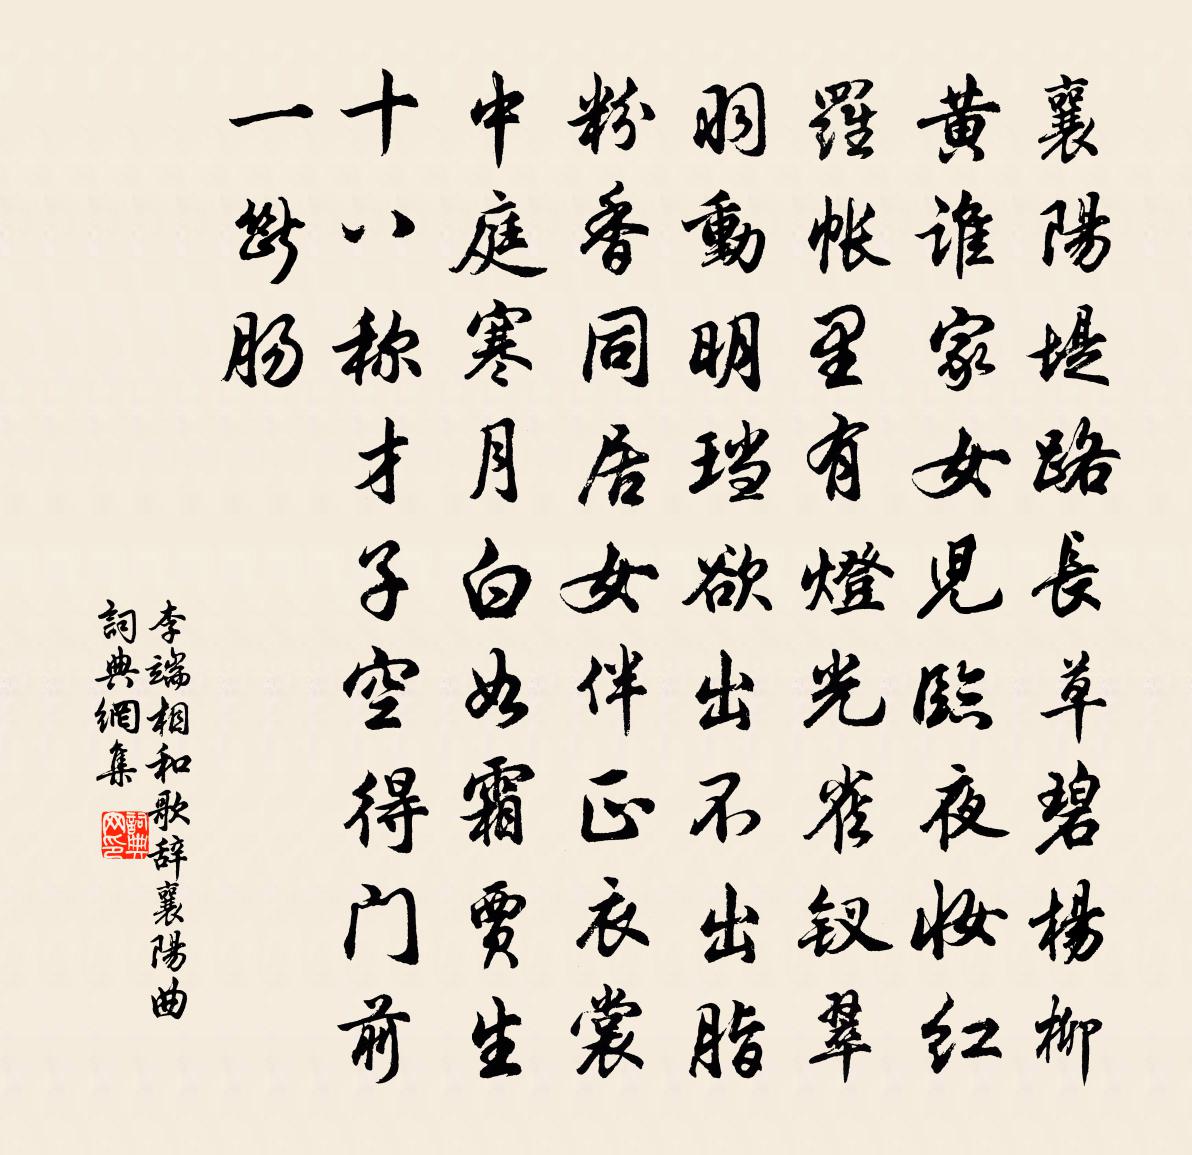 襄陽堤路長草碧楊柳
黄誰家女児臨夜妆红
羅帐里有燈光雀钗翠
羽動明珰欲出不出脂
粉香同居女伴正衣裳
中庭寒月白如霜賈生
十八称才子空得门前
一斷肠
李端相和歌辞襄陽曲
詞典網集
詞典
网印